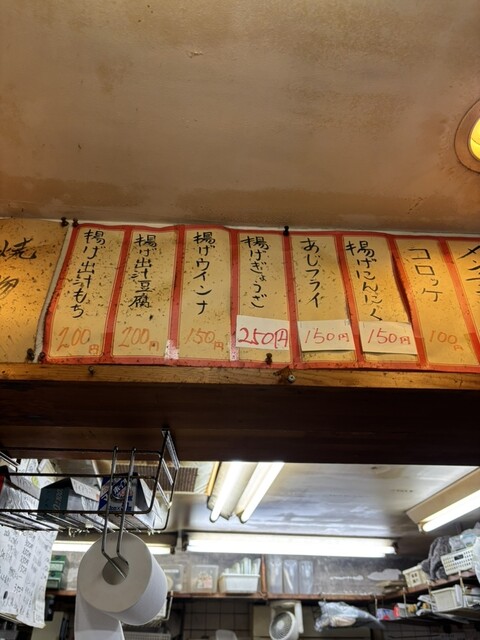 コロッケ
100円
揚げにんにく
150円
あじフライ
150円
揚げぎょうざ
250円
揚げウインナ
150円
揚げ出汁豆腐
200円
揚げ出汁もち
200円
焼物